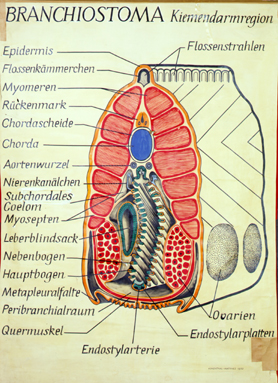 BRANCHIOSTOMA Kiemendarmregion
Flossenstrahlen
Epidermis
Flossenkämmerchen
Myomeren
Rückenmark
Chordascheide
Chorda
Aortenwurzel
Nierenkanälchen
Subchordales
Coelom
Myosepten
Leberblindsack
Nebenbogen
Hauptbogen
Metapleuralfalte
Peribranchialraum
Quermuskel
Endostylarterie
Ovarien
Endostylarplatten